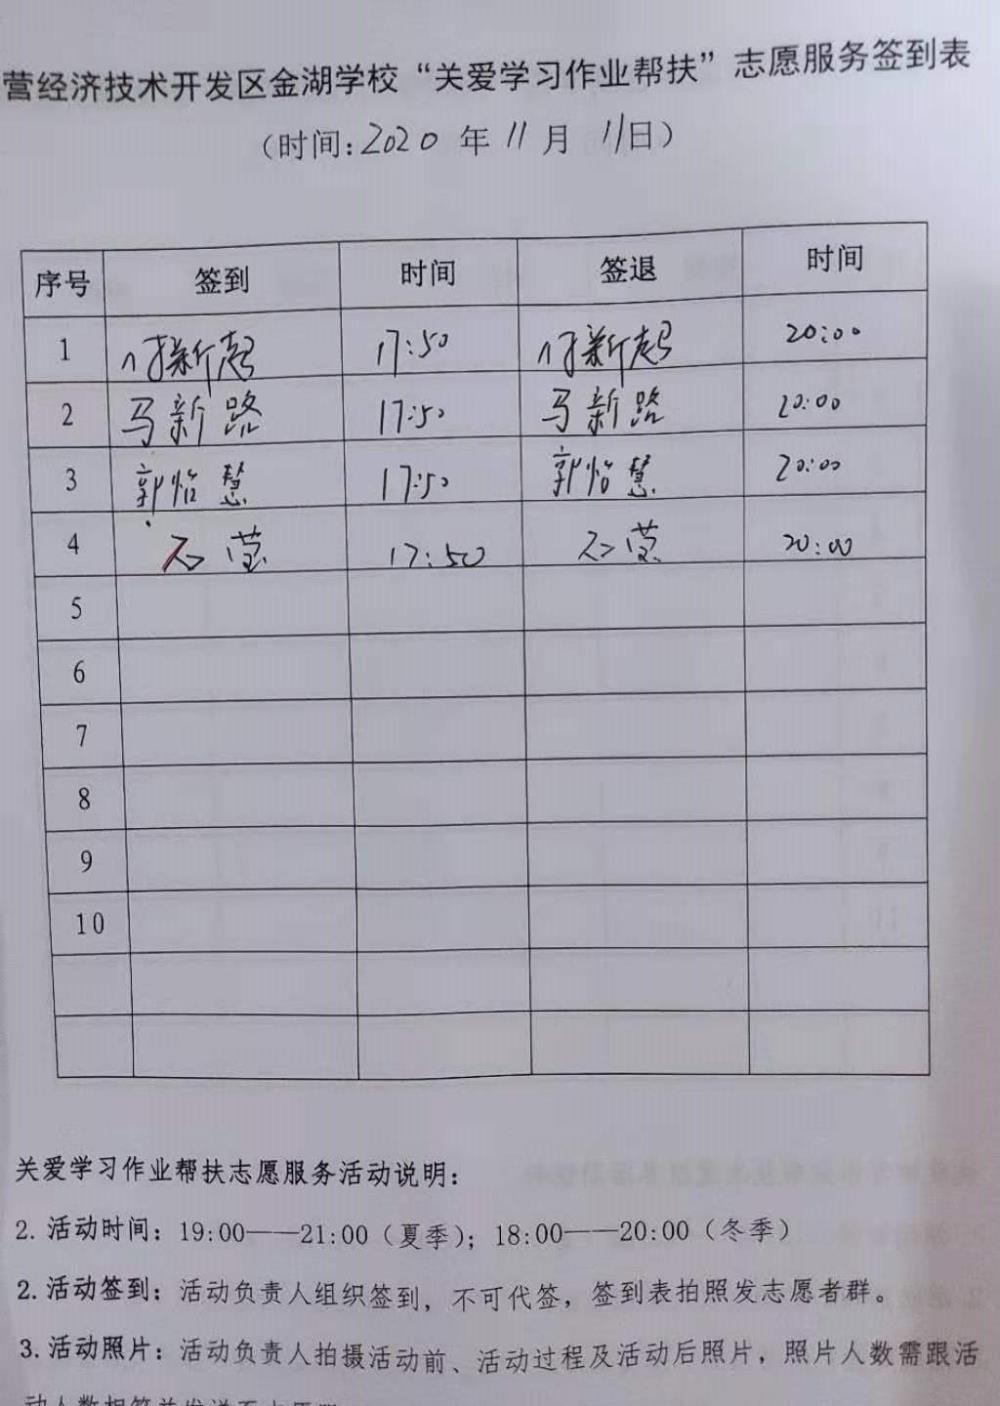 营经济技术开发区金湖学校“关爱学习作业帮扶”志愿服务签到表
（时间:2020 年 11 月 11日）
序号 签到 时间 签退 时间
1 付新起 17:50 付新起 20:00
2 马新路 17:50 马新路 20:00
3 郭怡慧 17:50 郭怡慧 20:00
4 石莹 17:50 石莹 20:00
5
6
7
8
9
10
关爱学习作业帮扶志愿服务活动说明：
2. 活动时间：19:00——21:00（夏季）；18:00——20:00（冬季）
2. 活动签到：活动负责人组织签到，不可代签，签到表拍照发志愿者群。
3. 活动照片：活动负责人拍摄活动前、活动过程及活动后照片，照片人数需跟活